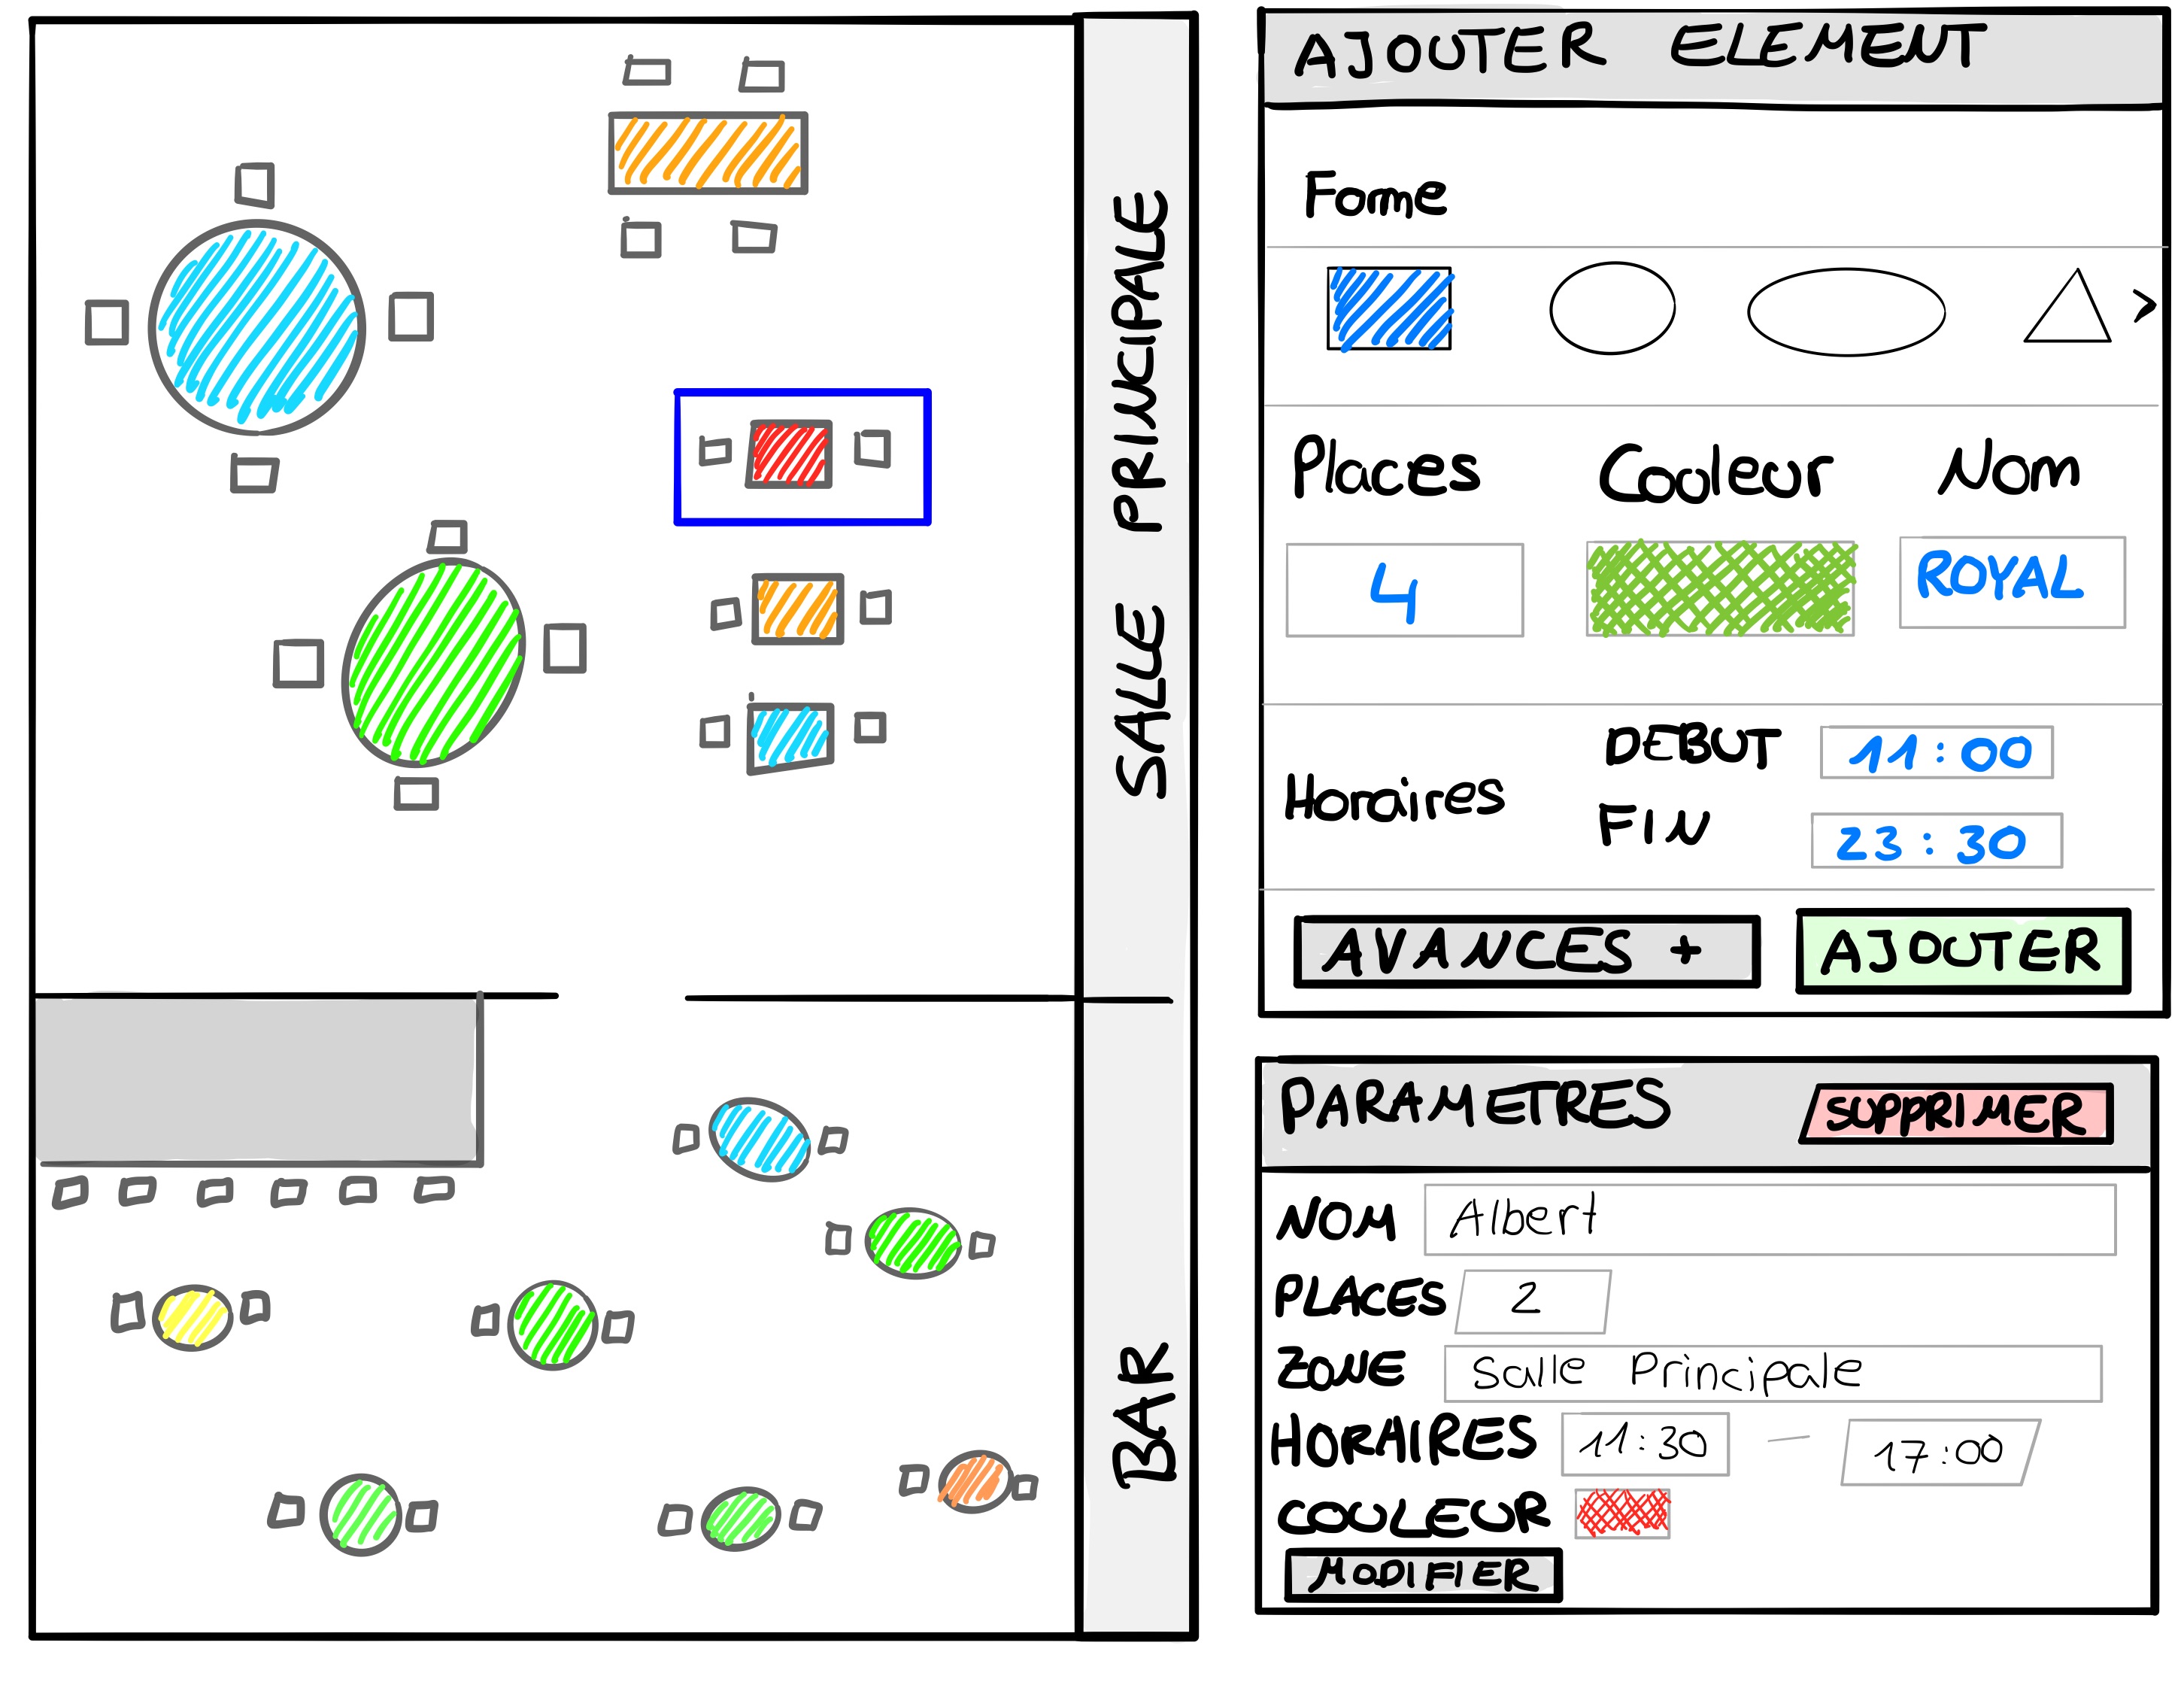 SALLE PRINCIPALE
BAR
AJOUTER ELEMENT
Fome
>
Places Couleur Nom
4 ROYAL
Horaires
DEBUT 11:00
FIN 23:30
AVANCES +
AJOUTER
PARAMETRES
SUPPRIMER
NOM Albert
PLACES 2
ZONE Salle Principale
HORAIRES 11:30 — 17:00
COULEUR
MODIFIER